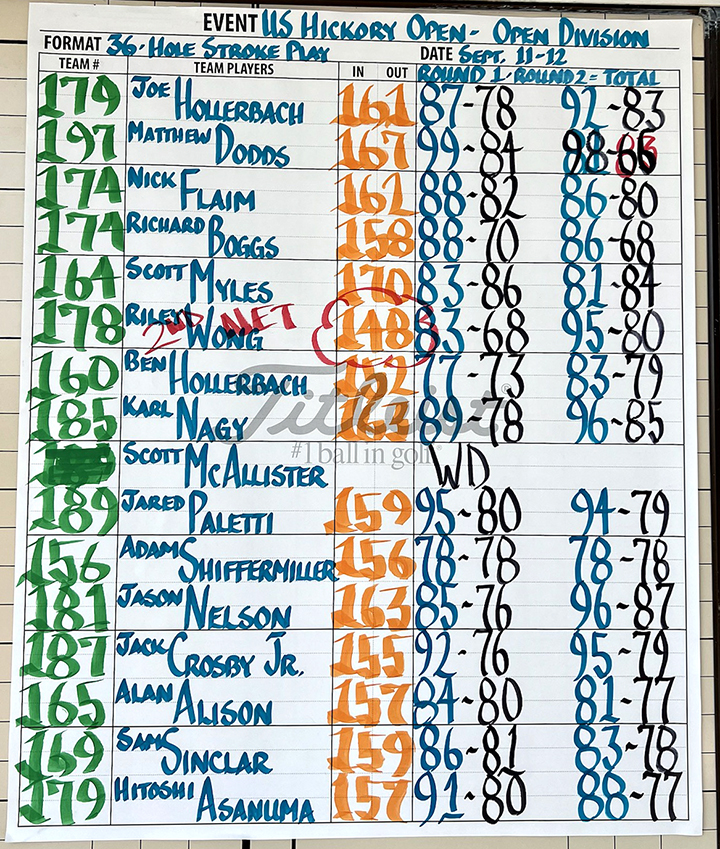 EVENT US HICKORY OPEN - OPEN DIVISION
FORMAT 36-HOLE STROKE PLAY DATE SEPT. 11-12
TEAM # TEAM PLAYERS IN OUT ROUND 1 - ROUND 2 = TOTAL
179 JOE HOLLERBACH 161 87-78 92-83
197 MATTHEW DODDS 167 99-84
174 NICK FLAIM 161 88-82 86-80
174 RICHARD BOGGS 158 88-70 86-68
164 SCOTT MYLES 170 83-86 81-84
178 RILEY WONG 148 83-68 95-80
2ND NET
160 BEN HOLLERBACH 152 77-73 83-79
185 KARL NAGY 89-78 96-85
Titleist
#1 ball in golf
SCOTT MCALLISTER WD
189 JARED PALETTI 159 95-80 94-79
156 ADAM SHIFFERMILLER 156 78-78 78-78
181 JASON NELSON 163 85-76 96-87
187 JACK CROSBY JR. 155 92-76 95-79
165 ALAN ALISON 157 84-80 81-77
169 SAM SINCLAR 159 86-81 83-78
179 HITOSHI ASANUMA 157 91-80 88-77